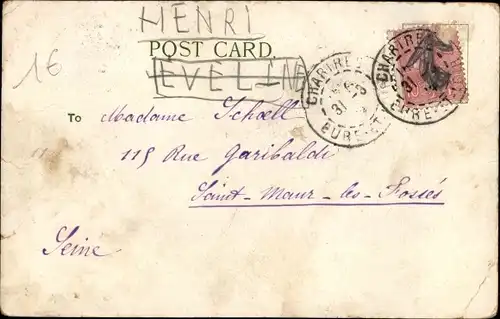 16
HENRI
POST CARD.
EVELINE
CHARTRES
31
EURE-ET
CHARTRES
31
EURE-ET
To Madame Schoell
115 Rue Garibaldi
Saint-Maur-les-Fossés
Seine